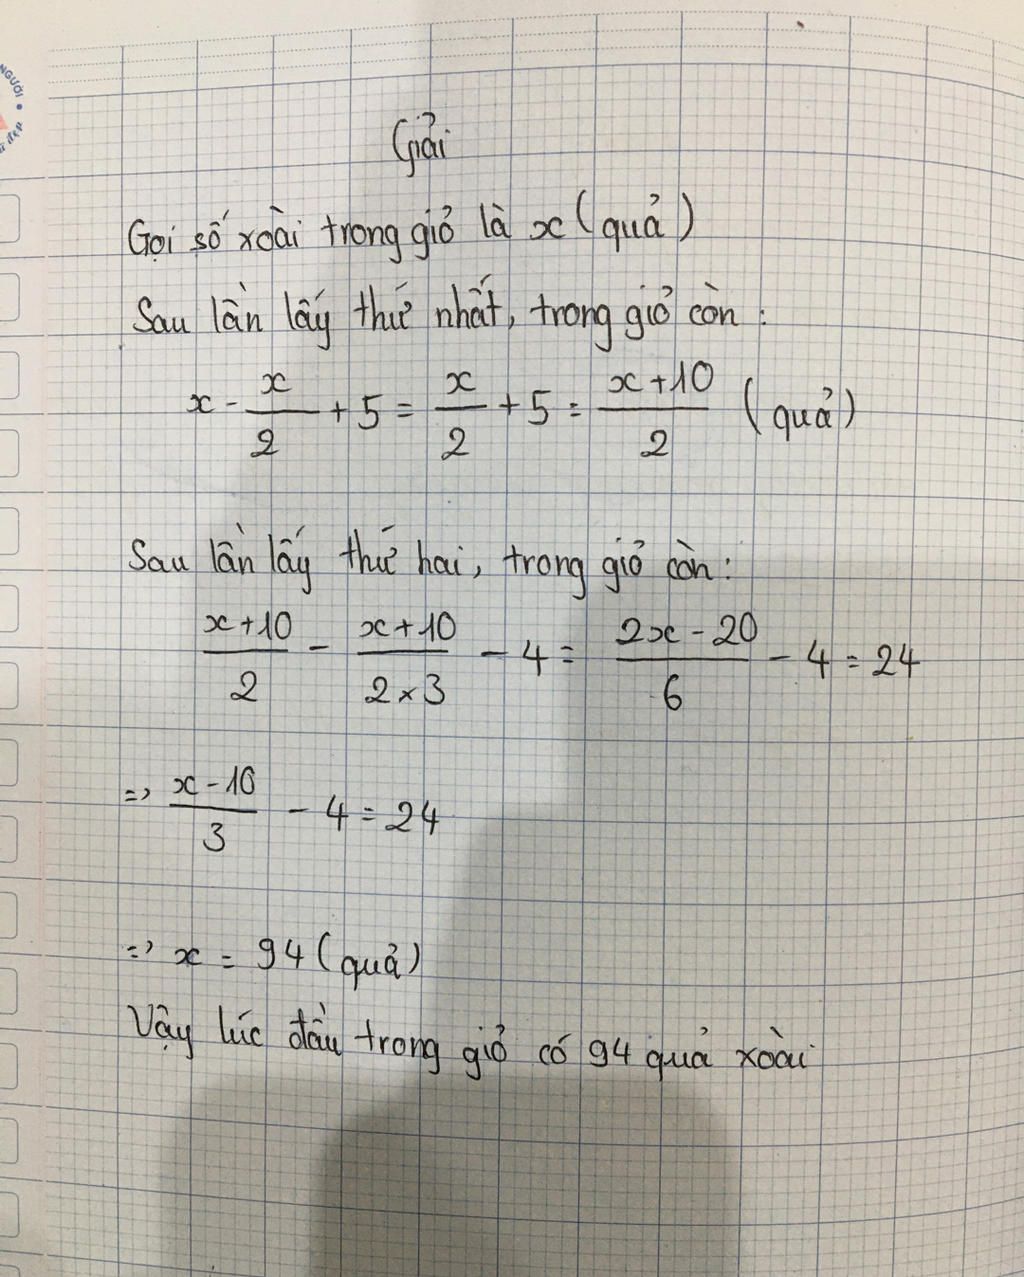 NGƯỜI
đẹp
Giải
Gọi số xoài trong giỏ là x (quả)
Sau lần lấy thứ nhất, trong giỏ còn :
x - x/2 + 5 = x/2 + 5 = (x + 10)/2 (quả)
Sau lần lấy thứ hai, trong giỏ còn :
(x + 10)/2 - (x + 10)/(2 × 3) - 4 = (2x - 20)/6 - 4 = 24
=> (x - 10)/3 - 4 = 24
=> x = 94 (quả)
Vậy lúc đầu trong giỏ có 94 quả xoài